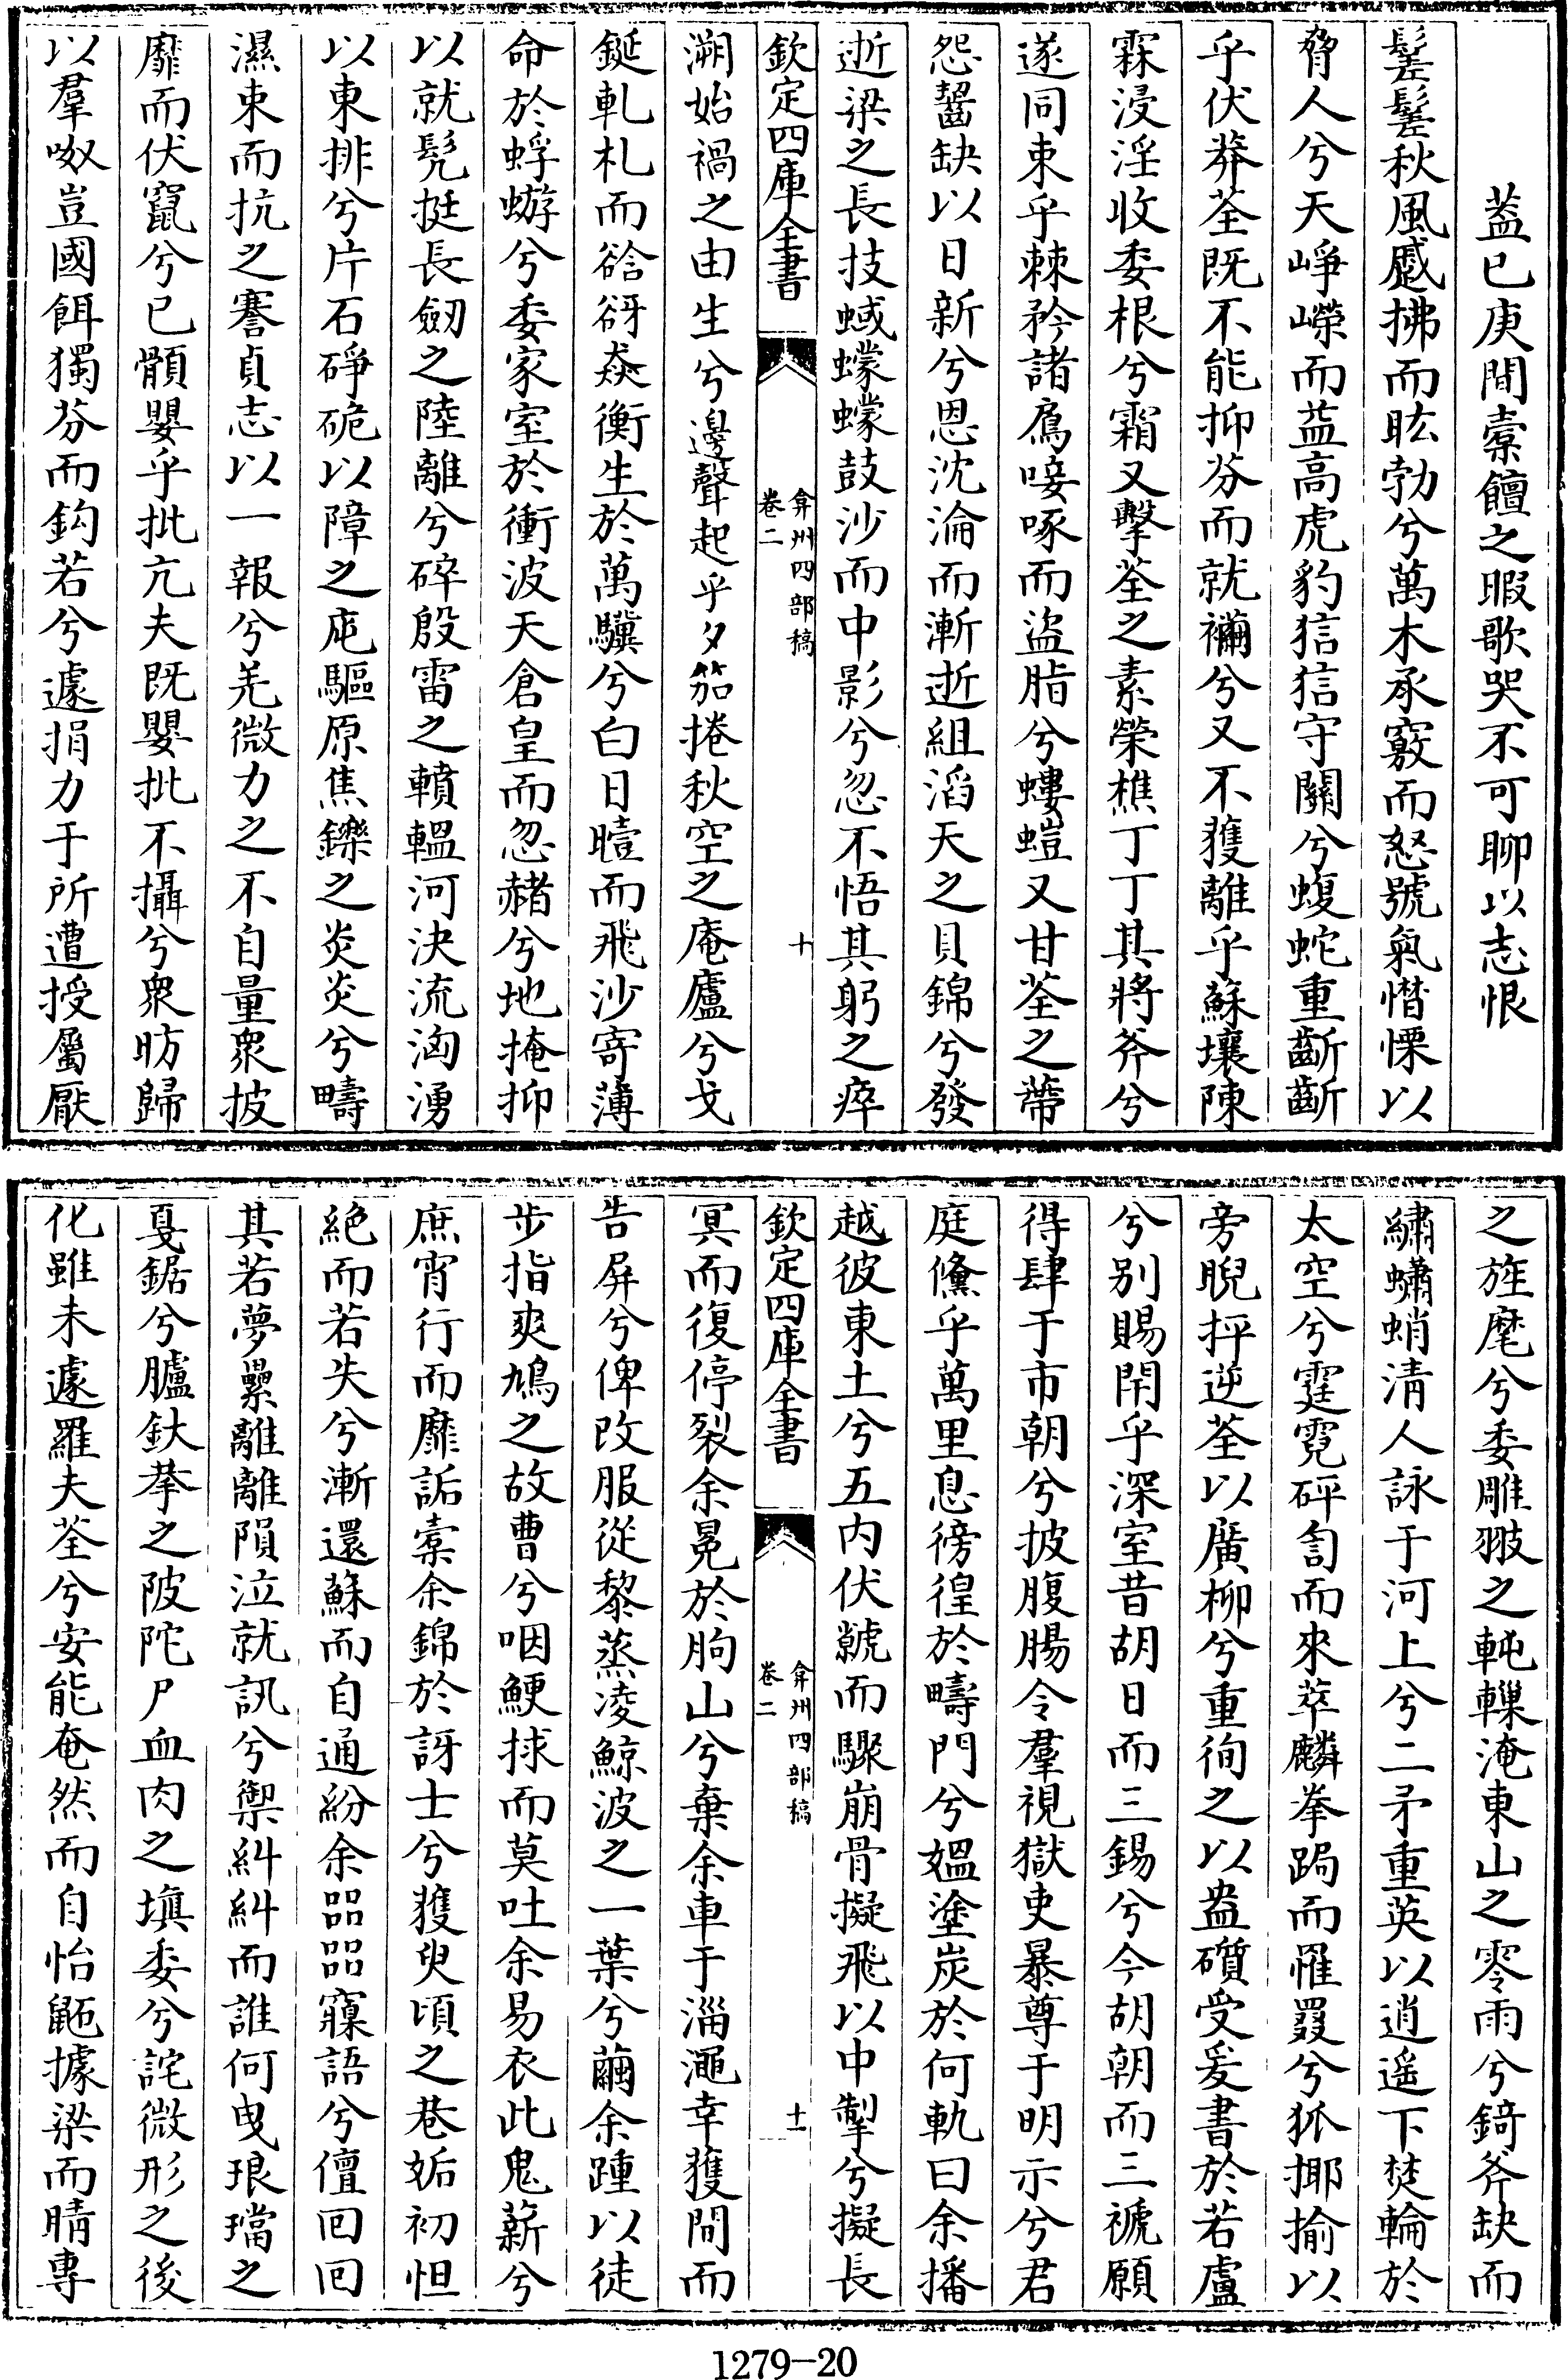 葢已庚間橐饘之暇歌哭不可聊以志恨
髿髿秋風慼拂而眩勃兮萬木承竅而怒號氣憯慄以
脅人兮天崢嶸而益高虎豹狺狺守關兮蝮蛇重齗齗
乎伏莽荃既不能抑芬而就禰兮又不獲離乎蘇壤陳
霖浸淫收委根兮霜又擊荃之素榮樵丁丁其將斧兮
遂同束乎棘矜諸鳸唼啄而盜脂兮螻螘又甘荃之蔕
怨齧缺以日新兮恩沈淪而漸逝組滔天之貝錦兮發
逝梁之長技蜮蠓蠓鼓沙而中影兮忽不悟其躬之瘁
欽定四庫全書
弇州四部稿
卷二
十
溯始禍之由生兮邊聲起乎夕笳捲秋空之庵廬兮戈
鋋軋札而谽谺猋衡生於萬驥兮白日曀而飛沙寄薄
命於蜉蝣兮委家室於衝波天倉皇而忽赭兮地掩抑
以就髡挺長劒之陸離兮碎殷雷之轒轀河決流洶湧
以東排兮片石硨硊以障之庉驅原焦鑠之炎炎兮疇
濕束而抗之謇貞志以一報兮羌微力之不自量衆披
靡而伏竄兮已顝嬰乎批亢夫既嬰批不攝兮衆昉歸
以羣呶豈國餌獨芬而鈎若兮遽捐力于所遭授屬厭
之旌麾兮委雕翍之軘轈淹東山之零雨兮錡斧缺而
繡蠨蛸清人詠于河上兮二矛重英以逍遙下焚輪於
太空兮霆霓砰訇而來萃麟拳跼而罹罬兮狐揶揄以
旁睨抨逆荃以廣柳兮重徇之以盎礩受爰書於若盧
兮别賜閈乎深室昔胡日而三錫兮今胡朝而三褫願
得肆于市朝兮披腹腸令羣視獄吏暴尊于明示兮君
庭儵乎萬里息徬徨於疇門兮媼塗炭於何軌曰余播
越彼東土兮五内伏虩而驟崩骨擬飛以中掣兮擬長
欽定四庫全書
弇州四部稿
卷二
十一
冥而復停裂余冕於朐山兮棄余車于淄澠幸獲間而
告屏兮俾改服從黎蒸凌鯨波之一葉兮繭余踵以徒
步指爽鳩之故曹兮咽鯁捄而莫吐余易衣此鬼薪兮
庶宵行而靡詬橐余錦於訝士兮獲臾頃之巷姤初怛
絶而若失兮漸還蘇而自通紛余㗊㗊寱語兮儃回回
其若夢纍離離隕泣就訊兮禦糾糾而誰何曳琅璫之
戛鋸兮臚鈦拲之陂陀尸血肉之塡委兮詫微形之後
化雖未遽羅夫荃兮安能奄然而自怡鼫據梁而睛專
1279-20